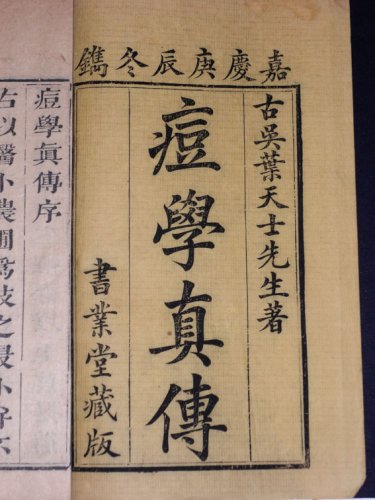 嘉慶庚辰冬鐫
古吳葉天士先生著
痘學真傳
書業堂藏版
痘學眞傳序
古以醫卜農圃爲技之最小